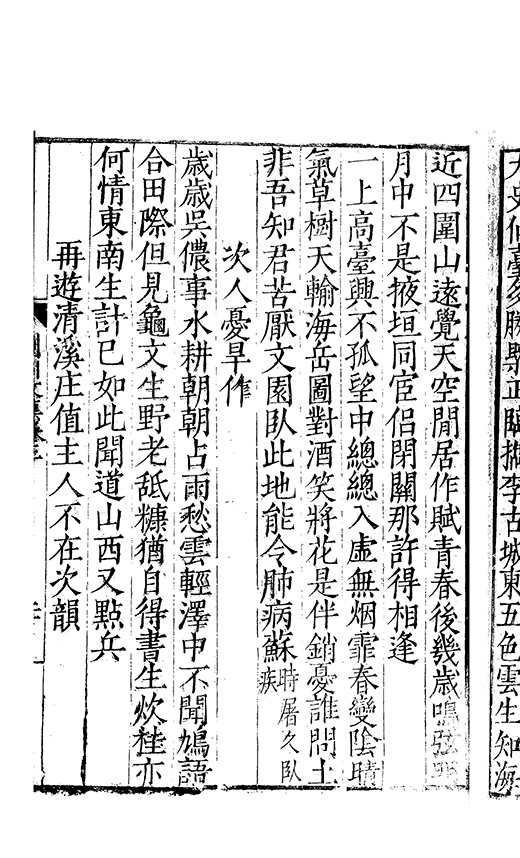 史伯臺多勝槩正臨檇李古城東五色雲生知海
近四圍山遠覺天空閒居作賦青春後幾歲鳴弦
月中不是掖垣同宦侶閉關那許得相逢
一上高臺興不孤望中總總入虛無烟霏春變陰晴
氣草樹天輸海岳圖對酒笑將花是伴銷憂誰問土
非吾知君苦厭文園臥此地能令肺病蘇時屠久臥疾
次人憂旱作
歲歲吳儂事水耕朝朝占雨愁雲輕澤中不聞鳩語
合田際但見龜文生野老舐糠猶自得書生炊桂亦
何情東南生計已如此聞道山西又點兵
再遊清溪庄值主人不在次韻